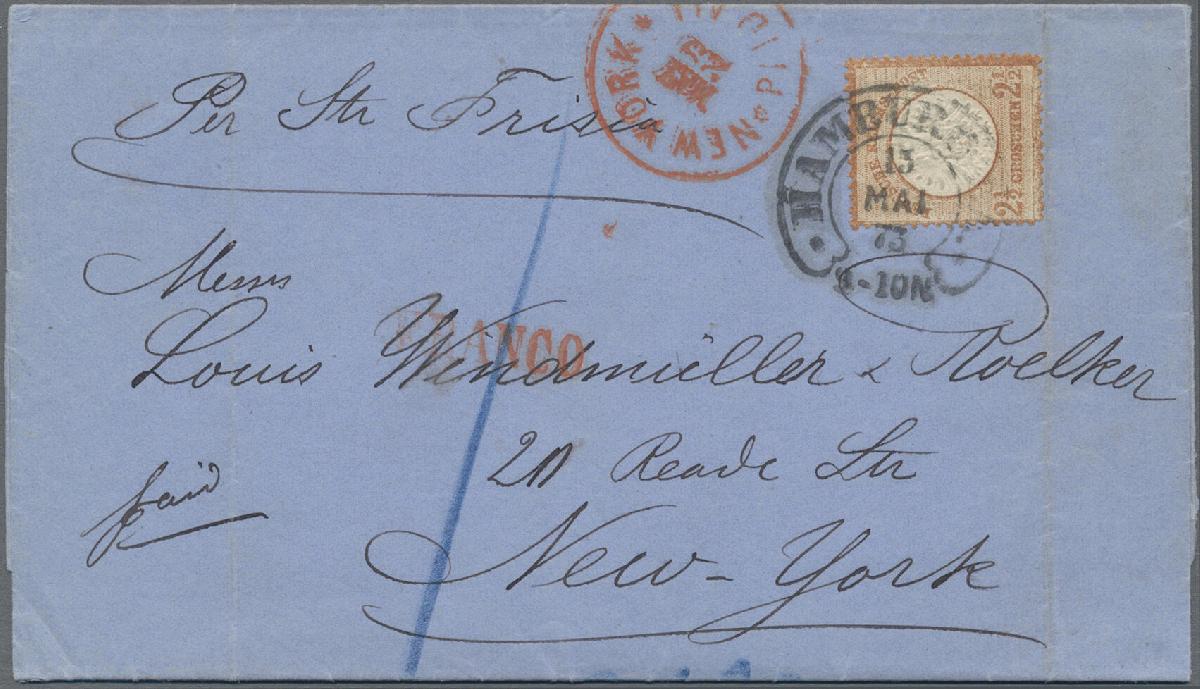 Per Str Frisia
NEW YORK * PAID ALL *
HAMBURG
13
MAI
73
9-10N
2½ 2½
2½ GROSCHEN
Messrs
Louis Windmüller & Roelker
FRANCO
20 Reade Str
paid
New-York